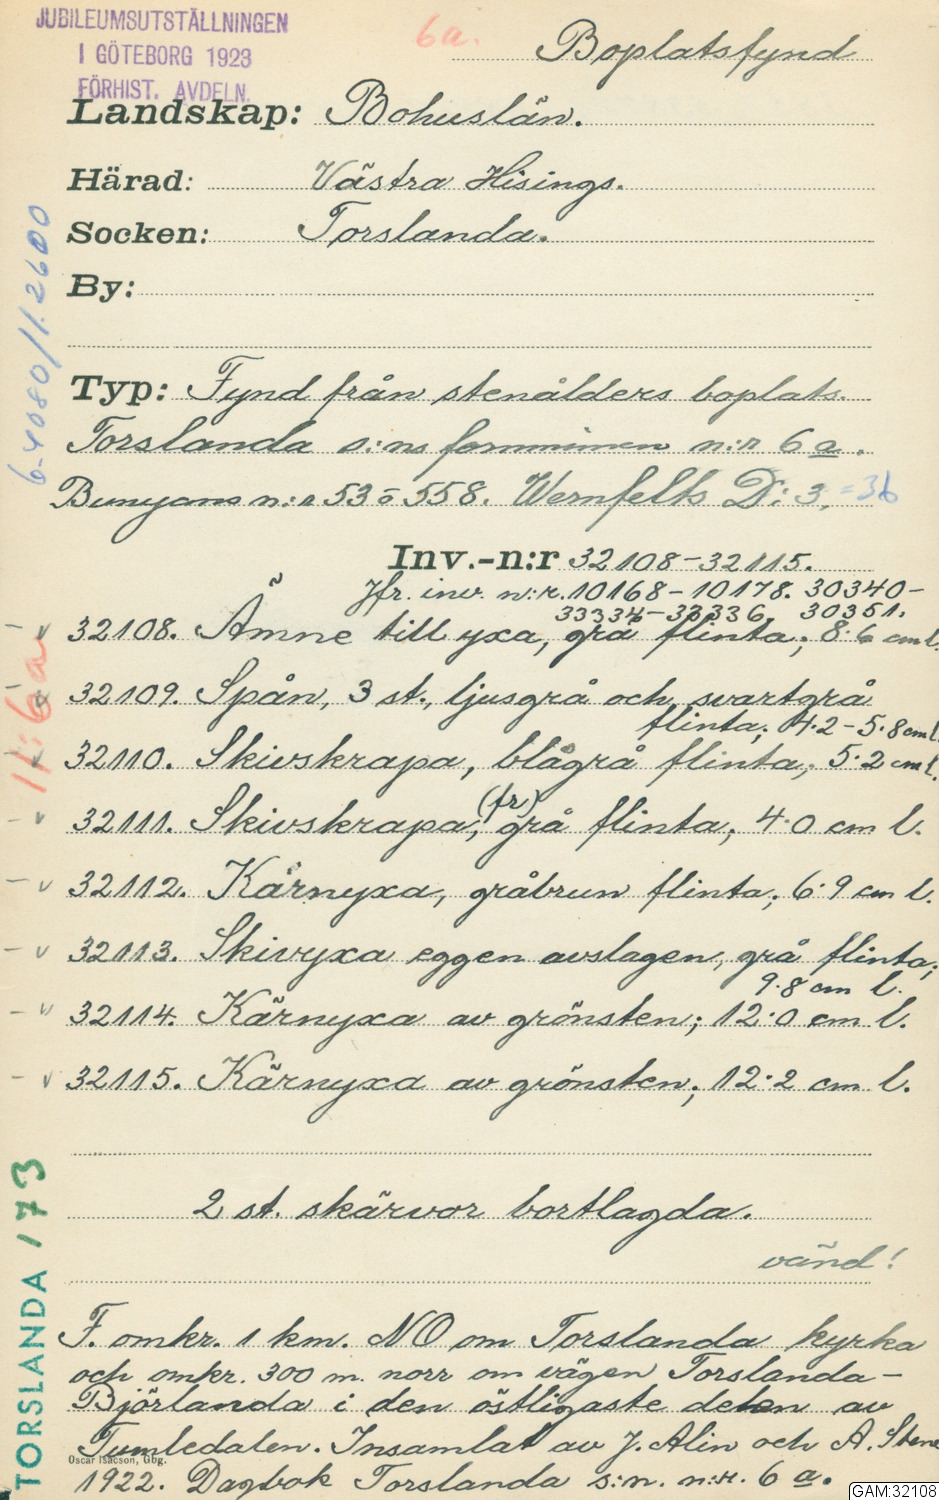 JUBILEUMSUTSTÄLLNINGEN
I GÖTEBORG 1923
FÖRHIST. AVDELN.
6a.
Boplatsfynd
Landskap: Bohuslän.
Härad: Västra Hisings.
Socken: Torslanda.
By:
Typ: Fynd från stenålders boplats.
Torslanda s:ns fornminnen n:r 6 a.
Bunyans n:r 53 o 558. Wernfelts D: 3, =36
Inv.-n:r 32108-32115.
Jfr. inv. n:r. 10168-10178. 30340-
33334-33336 30351.
32108. Ämne till yxa, grå flinta; 8·6 cm l.
32109. Spån, 3 st., ljusgrå och svartgrå
flinta; 4·2-5·8 cm l.
32110. Skivskrapa, blågrå flinta; 5·2 cm l.
(fr)
32111. Skivskrapa; grå flinta; 4·0 cm l.
32112. Kärnyxa, gråbrun flinta; 6·9 cm l.
32113. Skivyxa eggen avslagen, grå flinta;
9·8 cm l.
32114. Kärnyxa av grönsten; 12·0 cm l.
32115. Kärnyxa av grönsten; 12·2 cm l.
2 st. skärvor bortlagda.
vänd!
F. omkr. 1 km. NO om Torslanda kyrka
och omkr. 300 m. norr om vägen Torslanda-
Björlanda i den östligaste delen av
Tumledalen. Insamlat av J. Alin och A. Stene
Oscar Isacson, Gbg.
1922. Dagbok Torslanda s:n. n:r. 6 a.
6-4080/1.2600
11:6a
TORSLANDA 173
GAM:32108